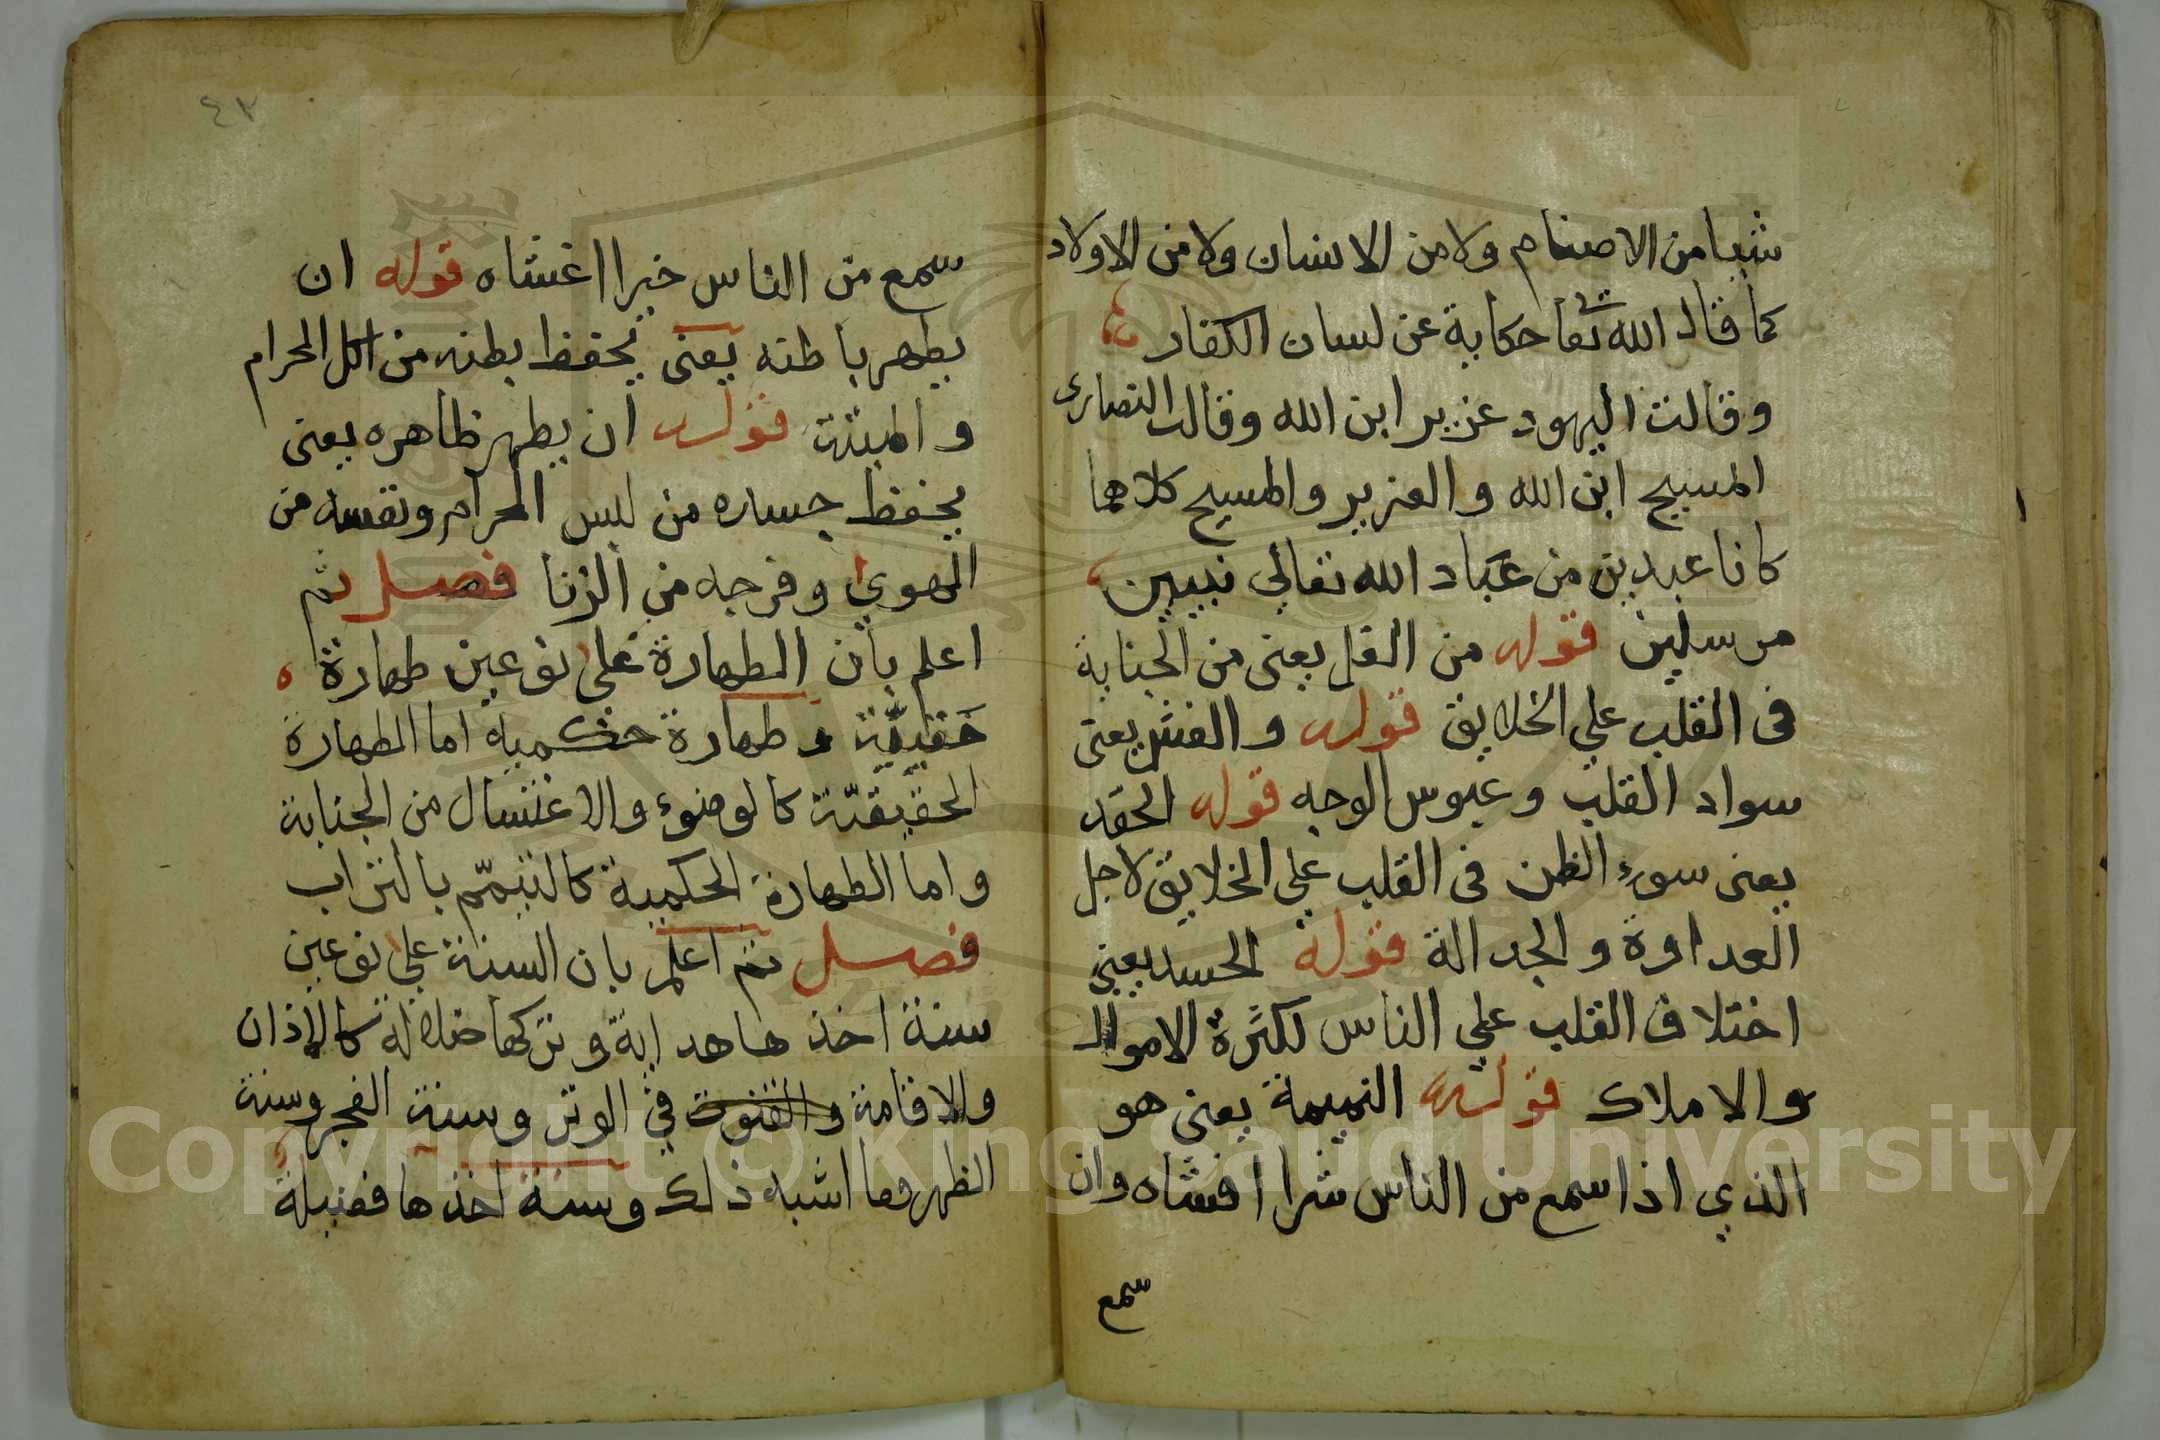 شيا من الاصنام ولا من الانسان ولا من الاولاد
كما قال الله تعا حكاية عن لسان الكفار
وقالت اليهود عزير ابن الله وقالت النصارى
المسيح ابن الله والعزير والمسيح كلاهما
كانا عبدين من عباد الله تعالي نبيين
مرسلين قوله من الغل يعنى من الجناية
فى القلب علي الخلايق قوله والغش يعنى
سواد القلب وعبوس الوجه قوله الحقد
يعنى سوء الظن فى القلب علي الخلايق لاجل
العداوة والجدالة قوله الحسد يعنى
اختلاف القلب علي الناس لكثرة الاموال
والاملاك قوله النميمة يعنى هو
الذي اذا سمع من الناس شرا افشاه وان
سمع
٤٣
سمع من الناس خيرا اغشاه قوله ان
يطهر باطنه يعنى يحفظ بطنه من اكل الحرام
والميتة قوله ان يطهر ظاهره يعنى
يحفظ جساره من لبس الحرام ونفسه من
الهوي وفرجه من الزنا فصل ثم
اعلم بان الطهارة علي نوعين طهارة
حقيقية وطهارة حكمية اما الطهارة
الحقيقيّة كالوضوء والاغتسال من الجنابة
واما الطهارة الحكمية كالتيمّم بالتراب
فصل ثم اعلم بان السنة علي نوعين
سنة اخذها هداية وتركها ضلالة كالاذان
والاقامة والقنوت في الوتر وسنة الفجر وسنة
الظهر وما اشبه ذلك وسنة اخذها فضيلة
Copyright © King Saud University